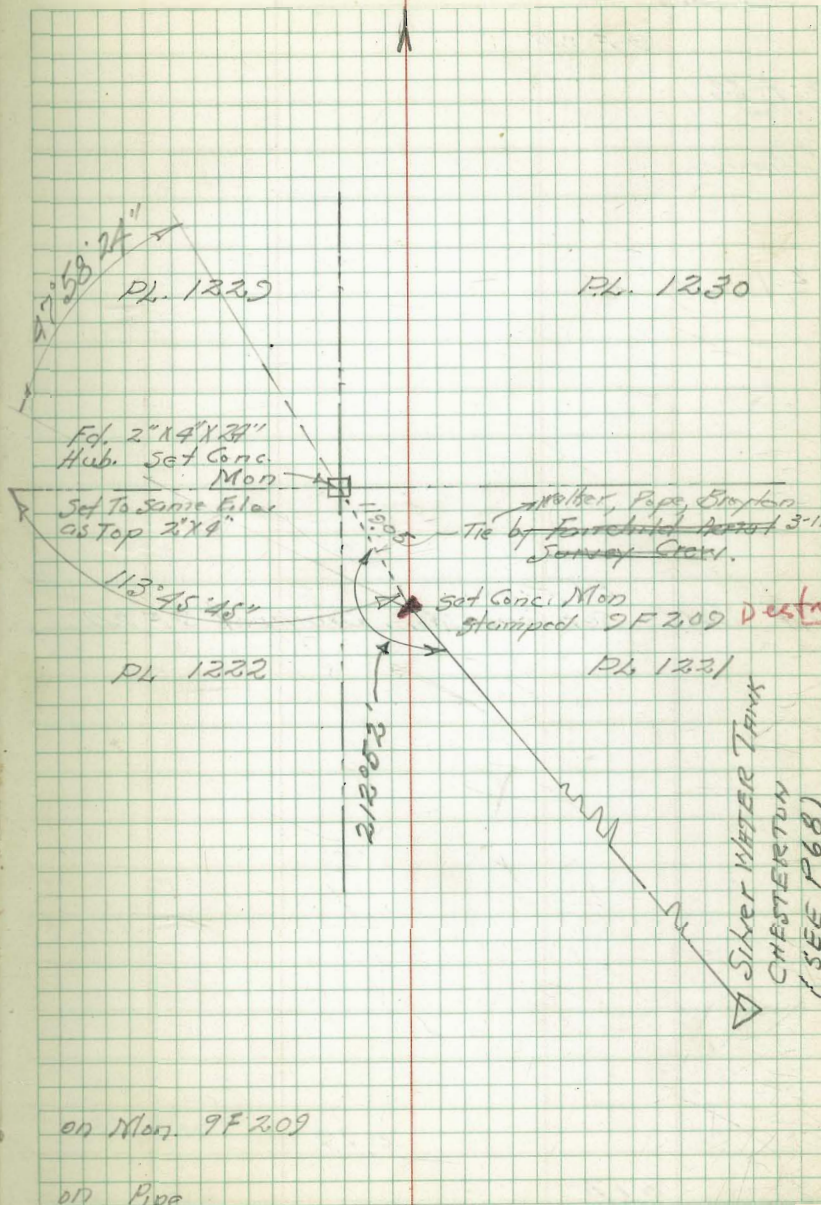 PL. 1229
PL. 1230
47°58'24"
Fd. 2"X4"X24"
Hub. Set Conc.
Mon
Set To Same Elev.
as Top 2"X4"
119.05
Walter, Pope, Brayton
Tie by Fairchild Aerial 3-1
Survey Crew.
113°45'45"
Set Conc. Mon
stamped 9F209
PL 1222
PL 1221
212°52'
Silver WATER TANK
CHESTERTON
(SEE P68)
on Mon. 9F209
on Pipe